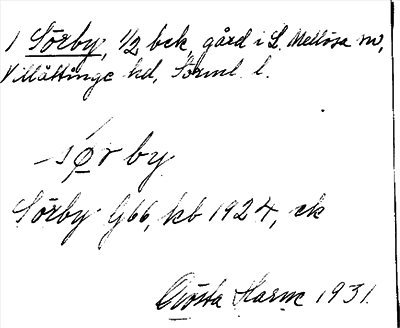 1 Sörby, 1/2 bck, gård i L. Mellösa sn,
Villåttinge hd, Sörml. l.
sørby
Sörby G66, kb 1924, ek
Gösta Harm 1931.